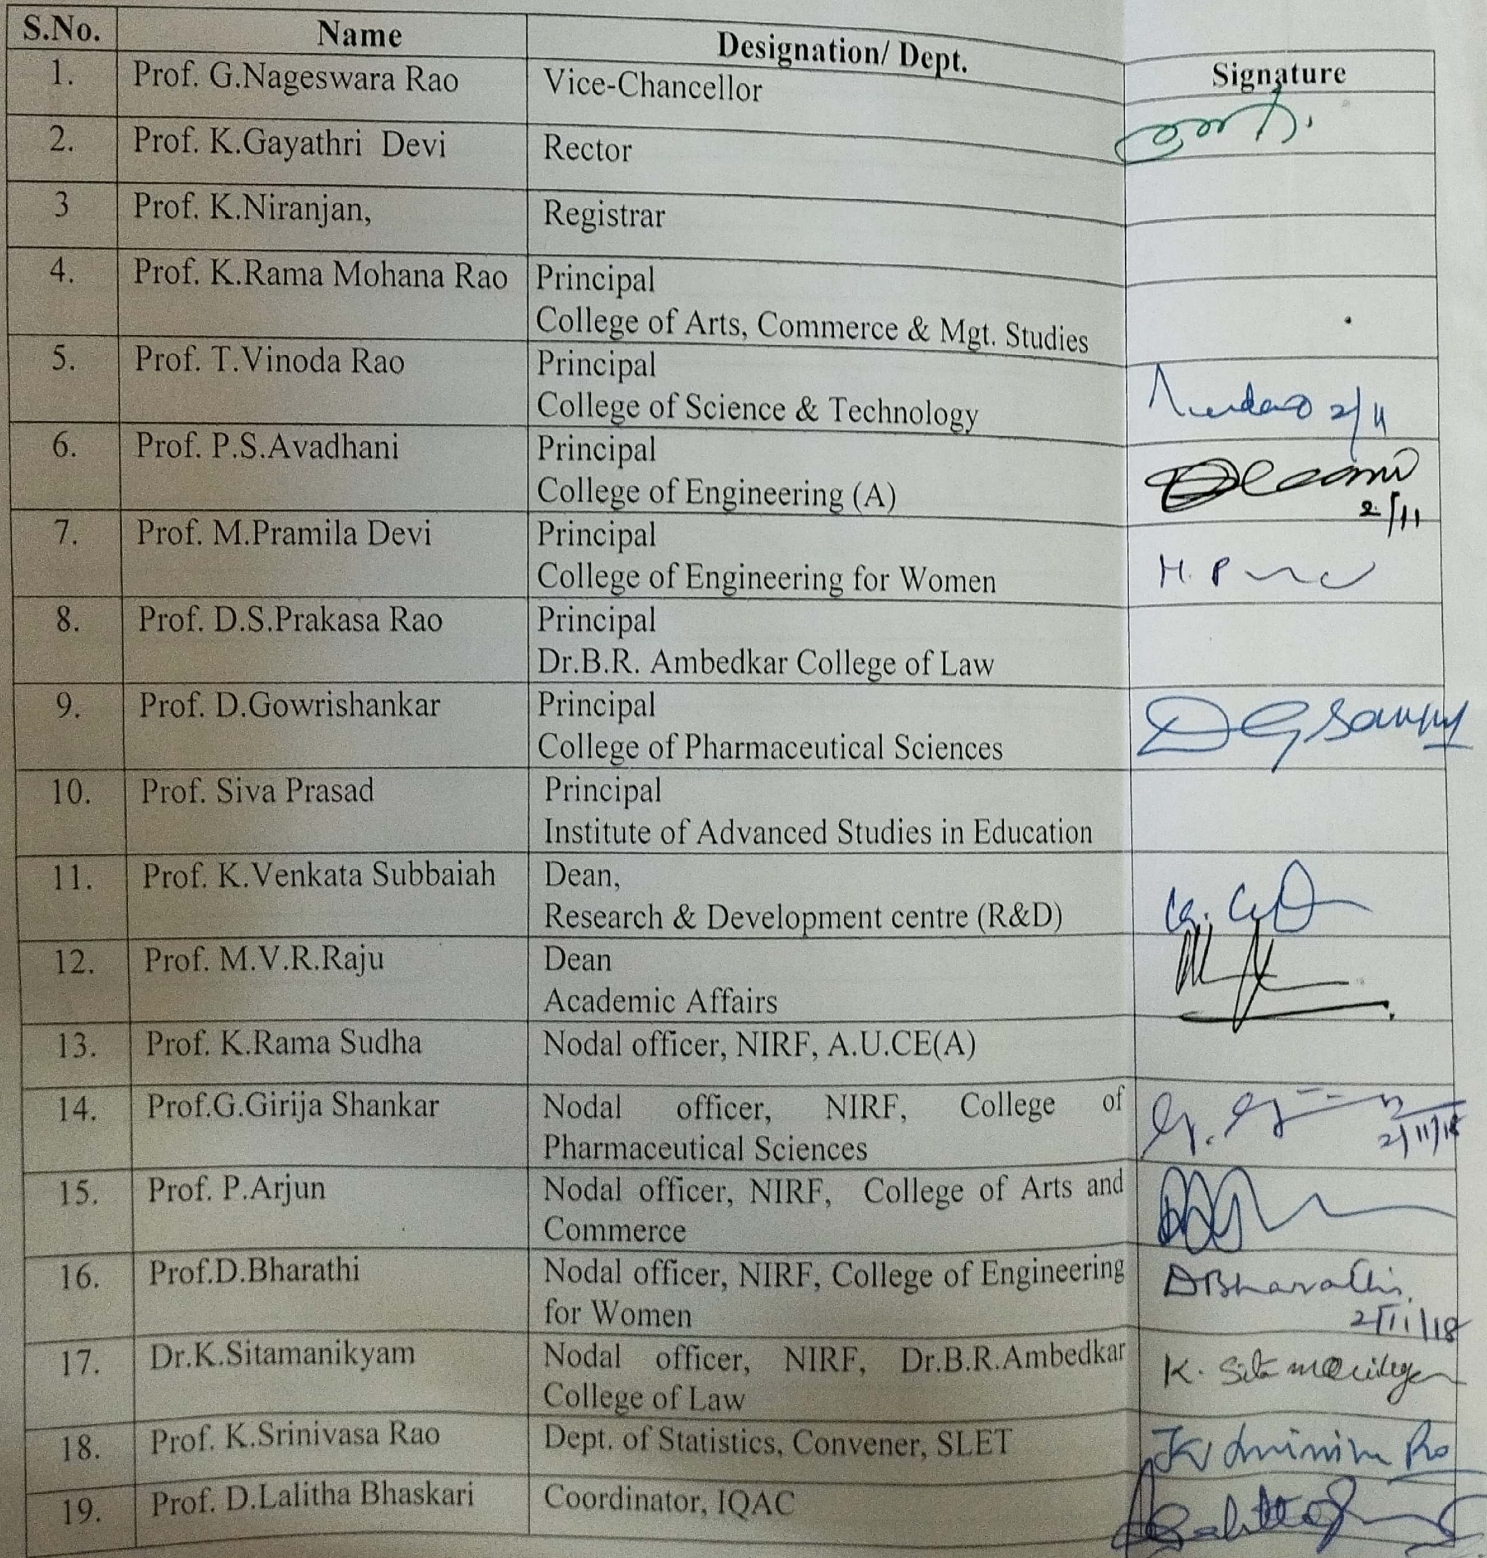 S.No. Name Designation/ Dept. Signature
1. Prof. G.Nageswara Rao Vice-Chancellor
2. Prof. K.Gayathri Devi Rector
3 Prof. K.Niranjan, Registrar
4. Prof. K.Rama Mohana Rao Principal
College of Arts, Commerce & Mgt. Studies
5. Prof. T.Vinoda Rao Principal
College of Science & Technology 2/11
6. Prof. P.S.Avadhani Principal
College of Engineering (A)
2/11
7. Prof. M.Pramila Devi Principal
College of Engineering for Women M. P
8. Prof. D.S.Prakasa Rao Principal
Dr.B.R. Ambedkar College of Law
9. Prof. D.Gowrishankar Principal
College of Pharmaceutical Sciences
10. Prof. Siva Prasad Principal
Institute of Advanced Studies in Education
11. Prof. K.Venkata Subbaiah Dean,
Research & Development centre (R&D)
12. Prof. M.V.R.Raju Dean
Academic Affairs
13. Prof. K.Rama Sudha Nodal officer, NIRF, A.U.CE(A)
14. Prof.G.Girija Shankar Nodal officer, NIRF, College of
Pharmaceutical Sciences 2/11/18
15. Prof. P.Arjun Nodal officer, NIRF, College of Arts and
Commerce
16. Prof.D.Bharathi Nodal officer, NIRF, College of Engineering DBharathi
for Women 2/11/18
17. Dr.K.Sitamanikyam Nodal officer, NIRF, Dr.B.R.Ambedkar
College of Law
18. Prof. K.Srinivasa Rao Dept. of Statistics, Convener, SLET
19. Prof. D.Lalitha Bhaskari Coordinator, IQAC